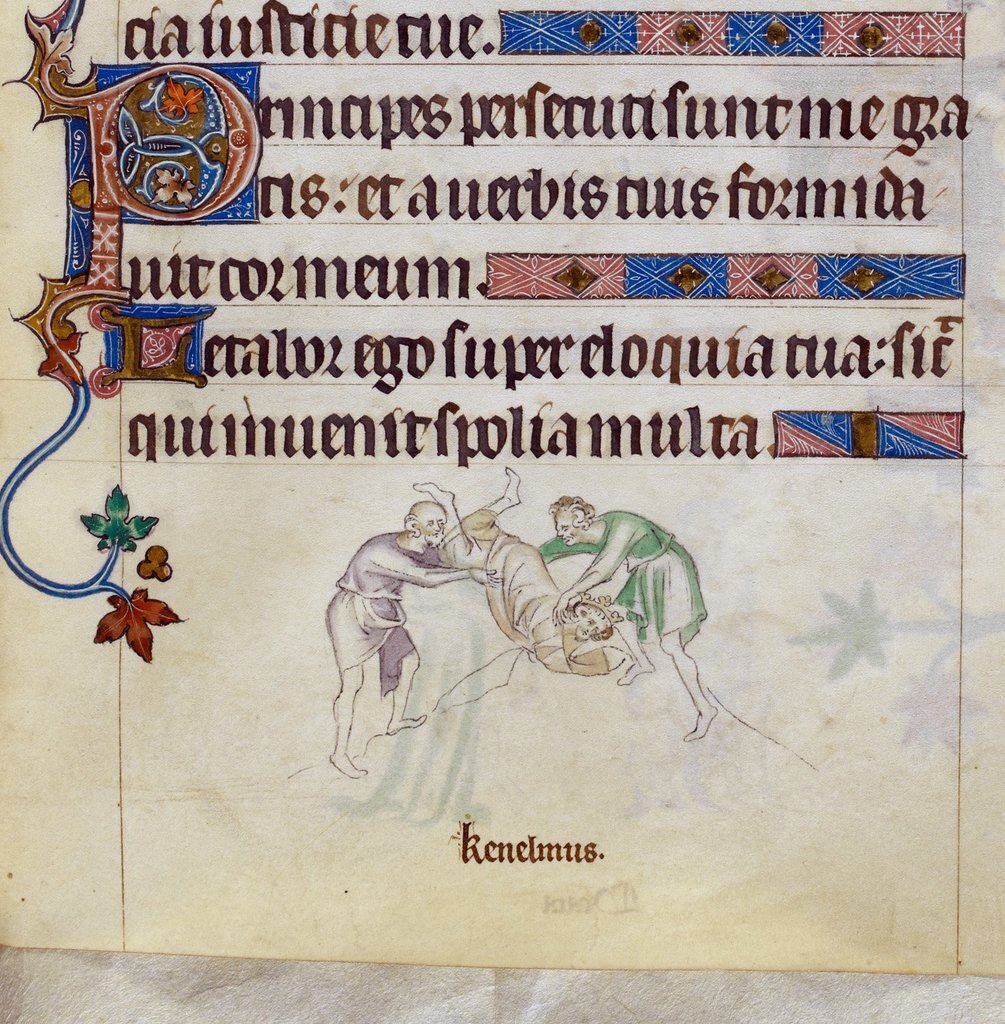 cia iusticie tue.
Principes persecuti sunt me gra
tis: et a uerbis tuis formida
uit cor meum.
Letabor ego super eloquia tua: sic̄
qui inuenit spolia multa.
kenelmus.